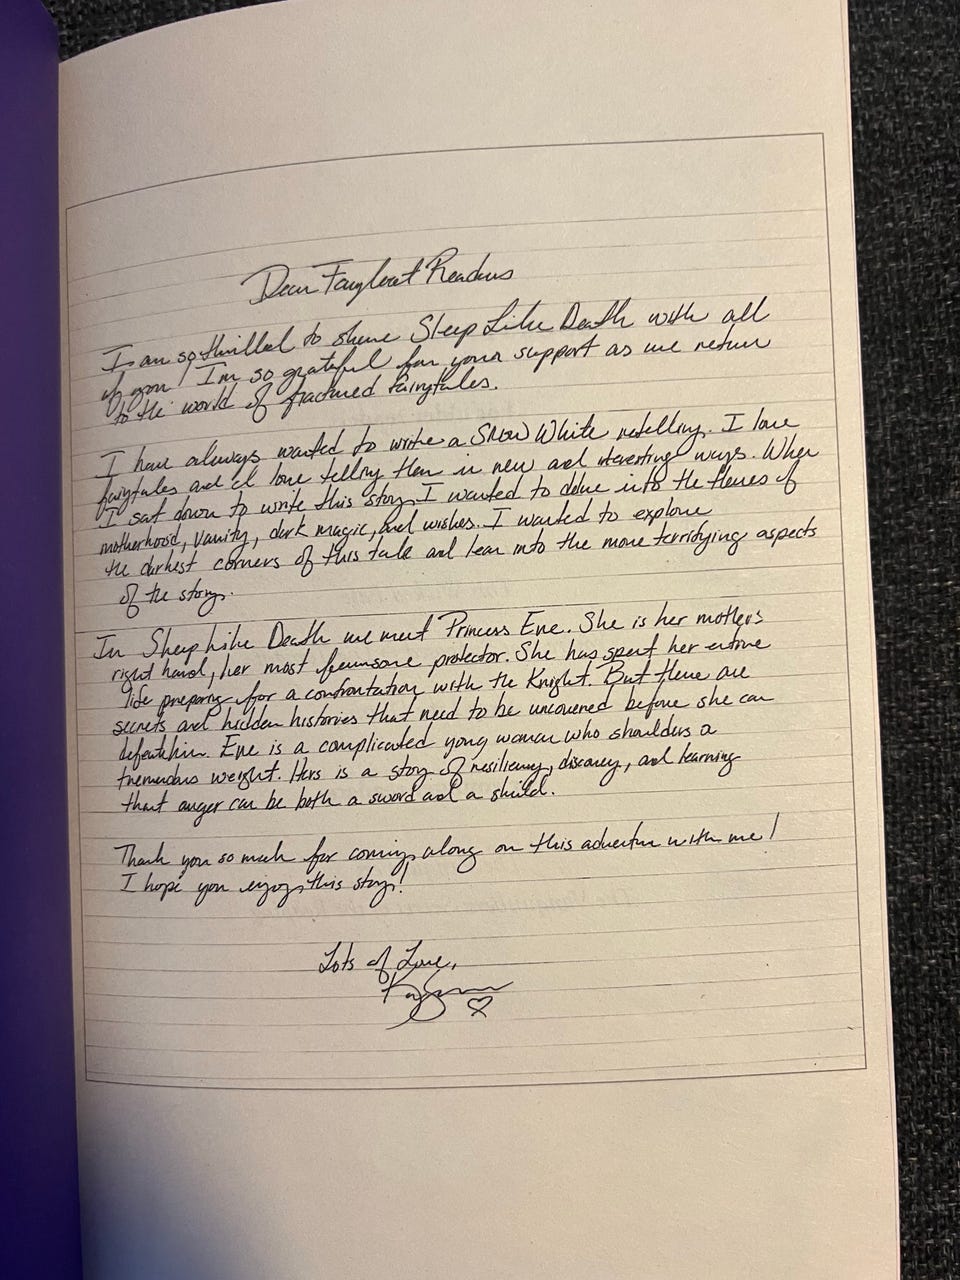 Dear Fairyloot Readers
I am so thrilled to share Sleep Like Death with all
of you! I'm so grateful for your support as we return
to the world of fractured fairytales.
I have always wanted to write a Snow White retelling. I love
fairytales and I love telling them in new and interesting ways. When
I sat down to write this story I wanted to delve into the themes of
motherhood, vanity, dark magic, and wishes. I wanted to explore
the darkest corners of this tale and lean into the more terrifying aspects
of the story.
In Sleep Like Death we meet Princess Eve. She is her mothers
right hand, her most fearsome protector. She has spent her entire
life preparing for a confrontation with the Knight. But there are
secrets and hidden histories that need to be uncovered before she can
defeat him. Eve is a complicated young woman who shoulders a
tremendous weight. Hers is a story of resiliency, discovery, and learning
that anger can be both a sword and a shield.
Thank you so much for coming along on this adventure with me!
I hope you enjoy this story!
Lots of Love,